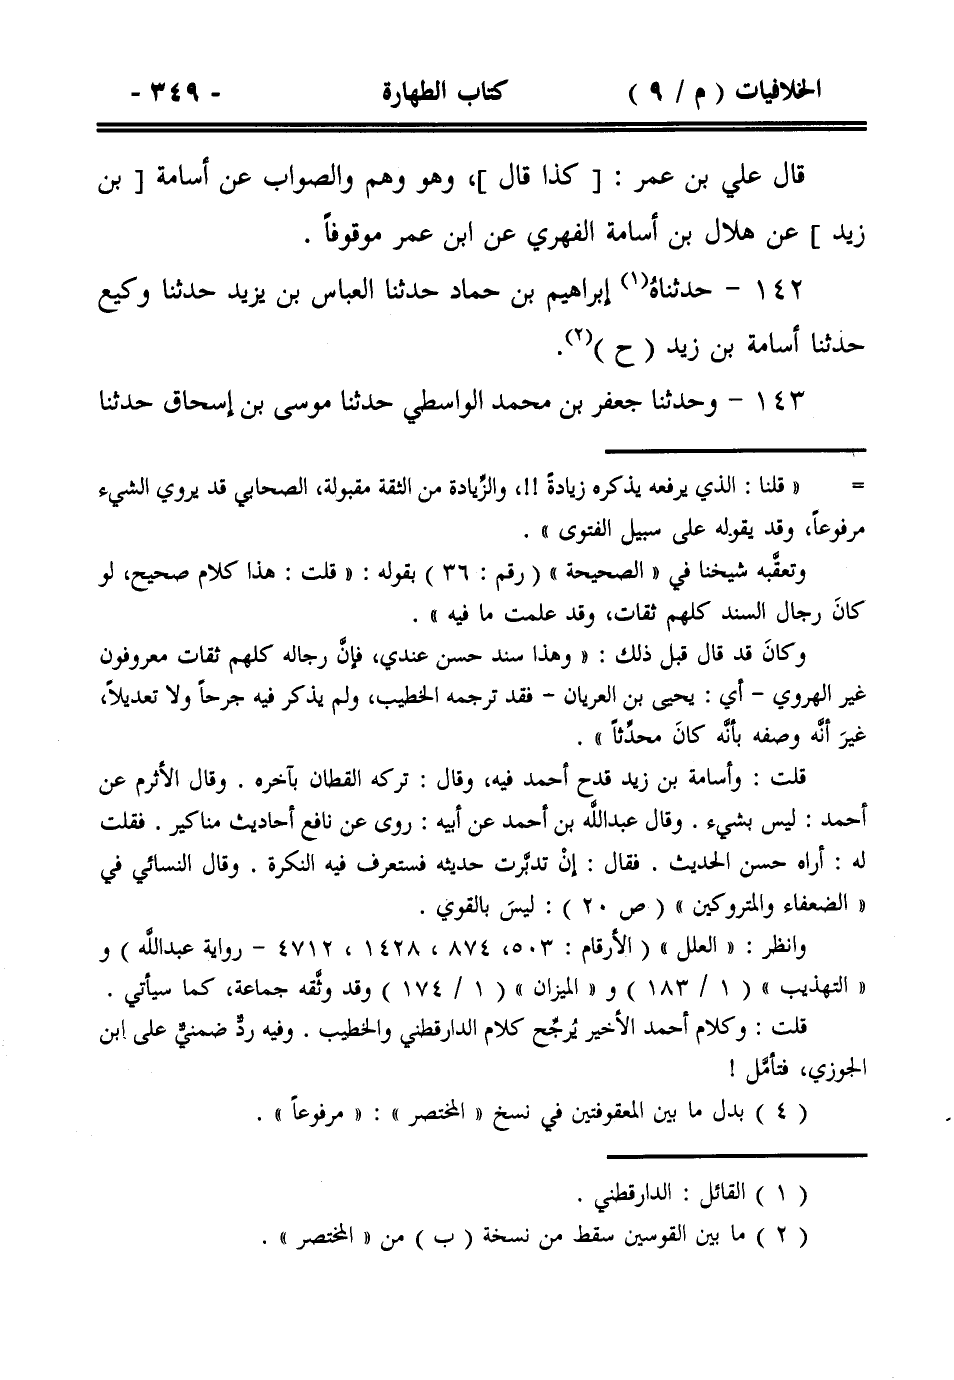 الخلافيات ( م / ٩ ) كتاب الطهارة - ٣٤٩ -
قال علي بن عمر : [ كذا قال ]، وهو وهم والصواب عن أسامة [ بن
زيد ] عن هلال بن أسامة الفهري عن ابن عمر موقوفاً .
١٤٢ - حدثناهُ(١) إبراهيم بن حماد حدثنا العباس بن يزيد حدثنا وكيع
حدثنا أسامة بن زيد ( ح )(٢).
١٤٣ - وحدثنا جعفر بن محمد الواسطي حدثنا موسى بن إسحاق حدثنا
= « قلنا : الذي يرفعه يذكره زيادةً !!، والزِّيادة من الثقة مقبولة، الصحابي قد يروي الشيء
مرفوعاً، وقد يقوله على سبيل الفتوى » .
وتعقَّبه شيخنا في « الصحيحة » ( رقم : ٣٦ ) بقوله : « قلت : هذا كلام صحيح، لو
كانَ رجال السند كلهم ثقات، وقد علمت ما فيه » .
وكانَ قد قال قبل ذلك : « وهذا سند حسن عندي، فإنَّ رجاله كلهم ثقات معروفون
غير الهروي - أي : يحيى بن العريان - فقد ترجمه الخطيب، ولم يذكر فيه جرحاً ولا تعديلاً،
غيرَ أنَّه وصفه بأنَّه كانَ محدِّثاً » .
قلت : وأسامة بن زيد قدح أحمد فيه، وقال : تركه القطان بآخره . وقال الأثرم عن
أحمد : ليس بشيء . وقال عبدالله بن أحمد عن أبيه : روى عن نافع أحاديث مناكير . فقلت
له : أراه حسن الحديث . فقال : إنْ تدبَّرت حديثه فستعرف فيه النكرة . وقال النسائي في
« الضعفاء والمتروكين » ( ص ٢٠ ) : ليسَ بالقوي .
وانظر : « العلل » ( الأرقام : ٥٠٣، ٨٧٤ ، ١٤٢٨ ، ٤٧١٢ - رواية عبدالله ) و
« التهذيب » ( ١ / ١٨٣ ) و « الميزان » ( ١ / ١٧٤ ) وقد وثَّقه جماعة، كما سيأتي .
قلت : وكلام أحمد الأخير يُرجِّح كلام الدارقطني والخطيب . وفيه ردٌّ ضمنيٌّ على ابن
الجوزي، فتأمَّل !
( ٤ ) بدل ما بين المعقوفتين في نسخ « المختصر » : « مرفوعاً » .
( ١ ) القائل : الدارقطني .
( ٢ ) ما بين القوسين سقط من نسخة ( ب ) من « المختصر » .